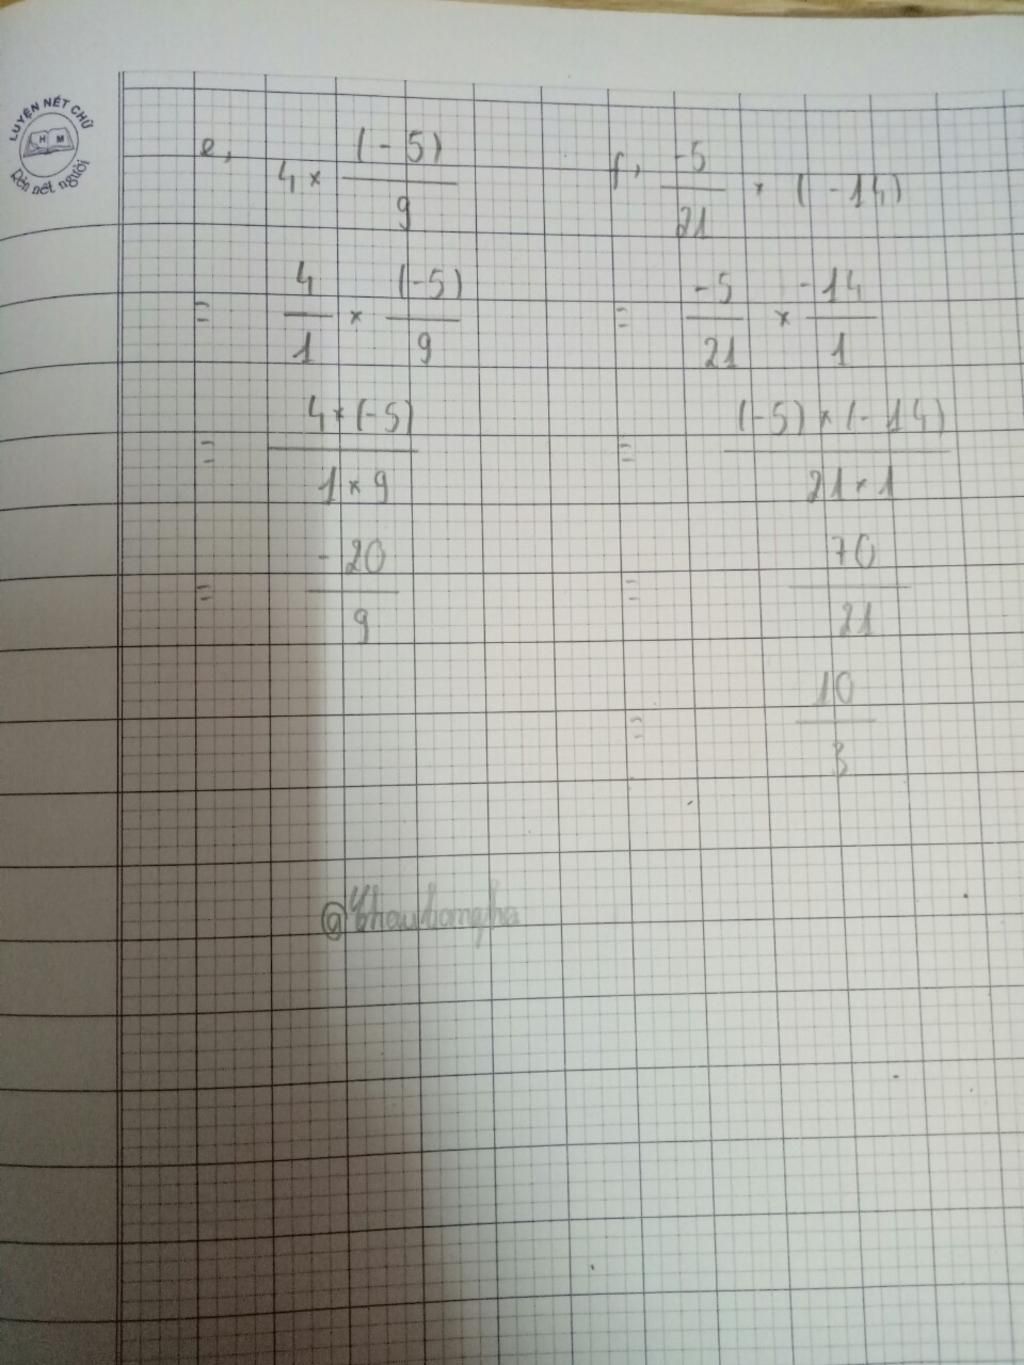 LUYỆN NÉT CHỮ
H M
Rèn nết người
e, 4 × (-5)/9
= 4/1 × (-5)/9
= 4×(-5)/1×9
= -20/9
f, -5/21 × (-14)
= -5/21 × -14/1
= (-5)×(-14)/21×1
= 70/21
= 10/3